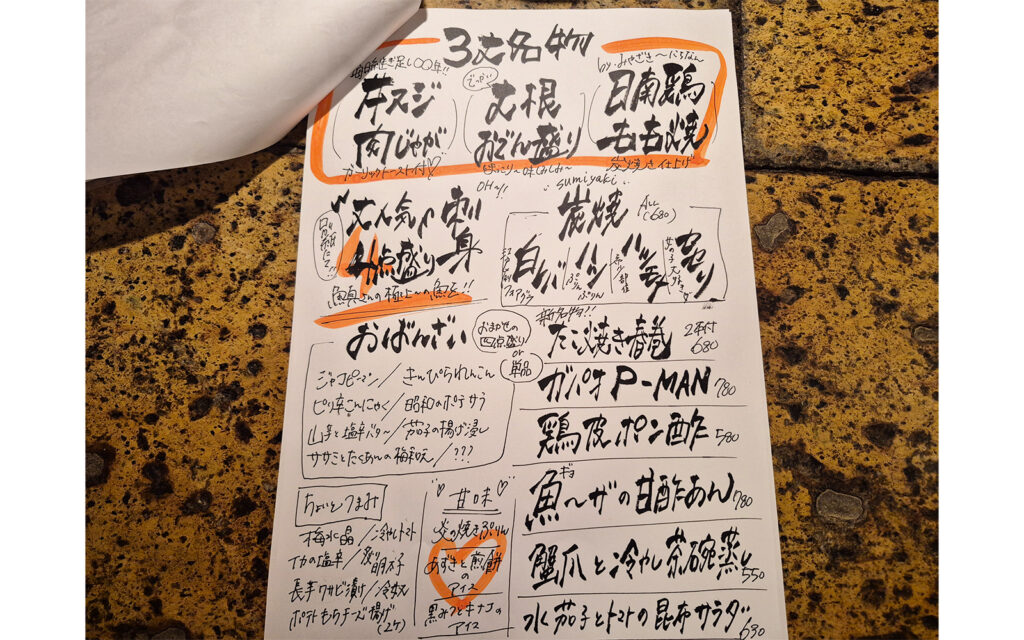 3丈名物
毎日注ぎ足し〇〇年!!
牛スジ
肉じゃが
ガーリックトースト付♡
でっかい
丈根
おでん盛り
ほっこり〜味しみしみ〜
by.みやざき〜にちなん
日南鶏
もも焼
炭焼き仕上げ
OH〜!!
"丈人気♪刺身
4点盛り
魚真さんの極上〜の魚を!!
sumiyaki
炭焼
ALL
(680)
白レバー
フォアグラ
ハツ
ぷりんぷりん
ハツモト
希少部位
ヤゲン
おばんざい
おまかせの
四点盛り
or
単品
ジャコピーマン/きんぴられんこん
ピリ辛こんにゃく/昭和のポテサラ
山芋と塩辛バター/茄子の揚げ浸し
ササミとたくあんの梅和え/???
新名物!!
たこ焼き春巻
2本付
680
ガパオP-MAN 780
鶏皮ポン酢 580
ギョ
魚〜ザの甘酢あん 780
蟹爪と冷やし茶碗蒸し 550
水茄子とトマトの昆布サラダ 690
ちょいとつまみ
梅水晶/冷やしトマト
イカの塩辛/炙明太子
長芋ワサビ漬け/冷奴
ポテトもちチーズ揚げ
(2ケ)
♡甘味♡
炎の焼きぷりん
あずきと煎餅
の
アイス
黒みつとキナコの
アイス